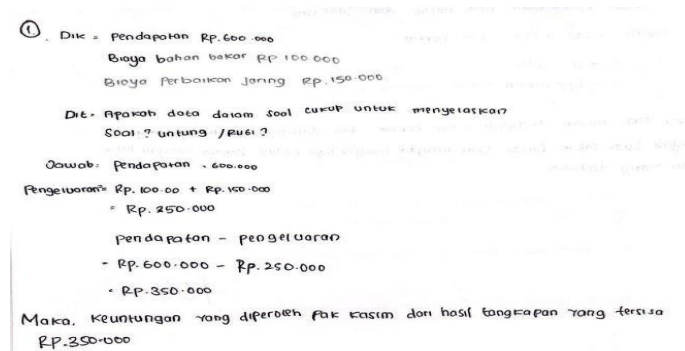 ① . Dik = Pendapatan Rp. 600.000
Biaya bahan bakar RP 100 000
Biaya Perbaikan Jaring Rp. 150.000
Dit = Apakah data dalam Soal cukup untuk menyelaskan
Soal ? untung / Rugi ?
Jawab = Pendapatan = 600.000
Pengeluaran = Rp. 100.00 + Rp. 150.000
= Rp. 250.000
pendapatan - pengeluaran
= Rp. 600.000 - Rp. 250.000
= Rp. 350.000
Maka, Keuntungan yang diperoleh Pak Kasim dari hasil tangkapan yang tersisa
Rp. 350.000